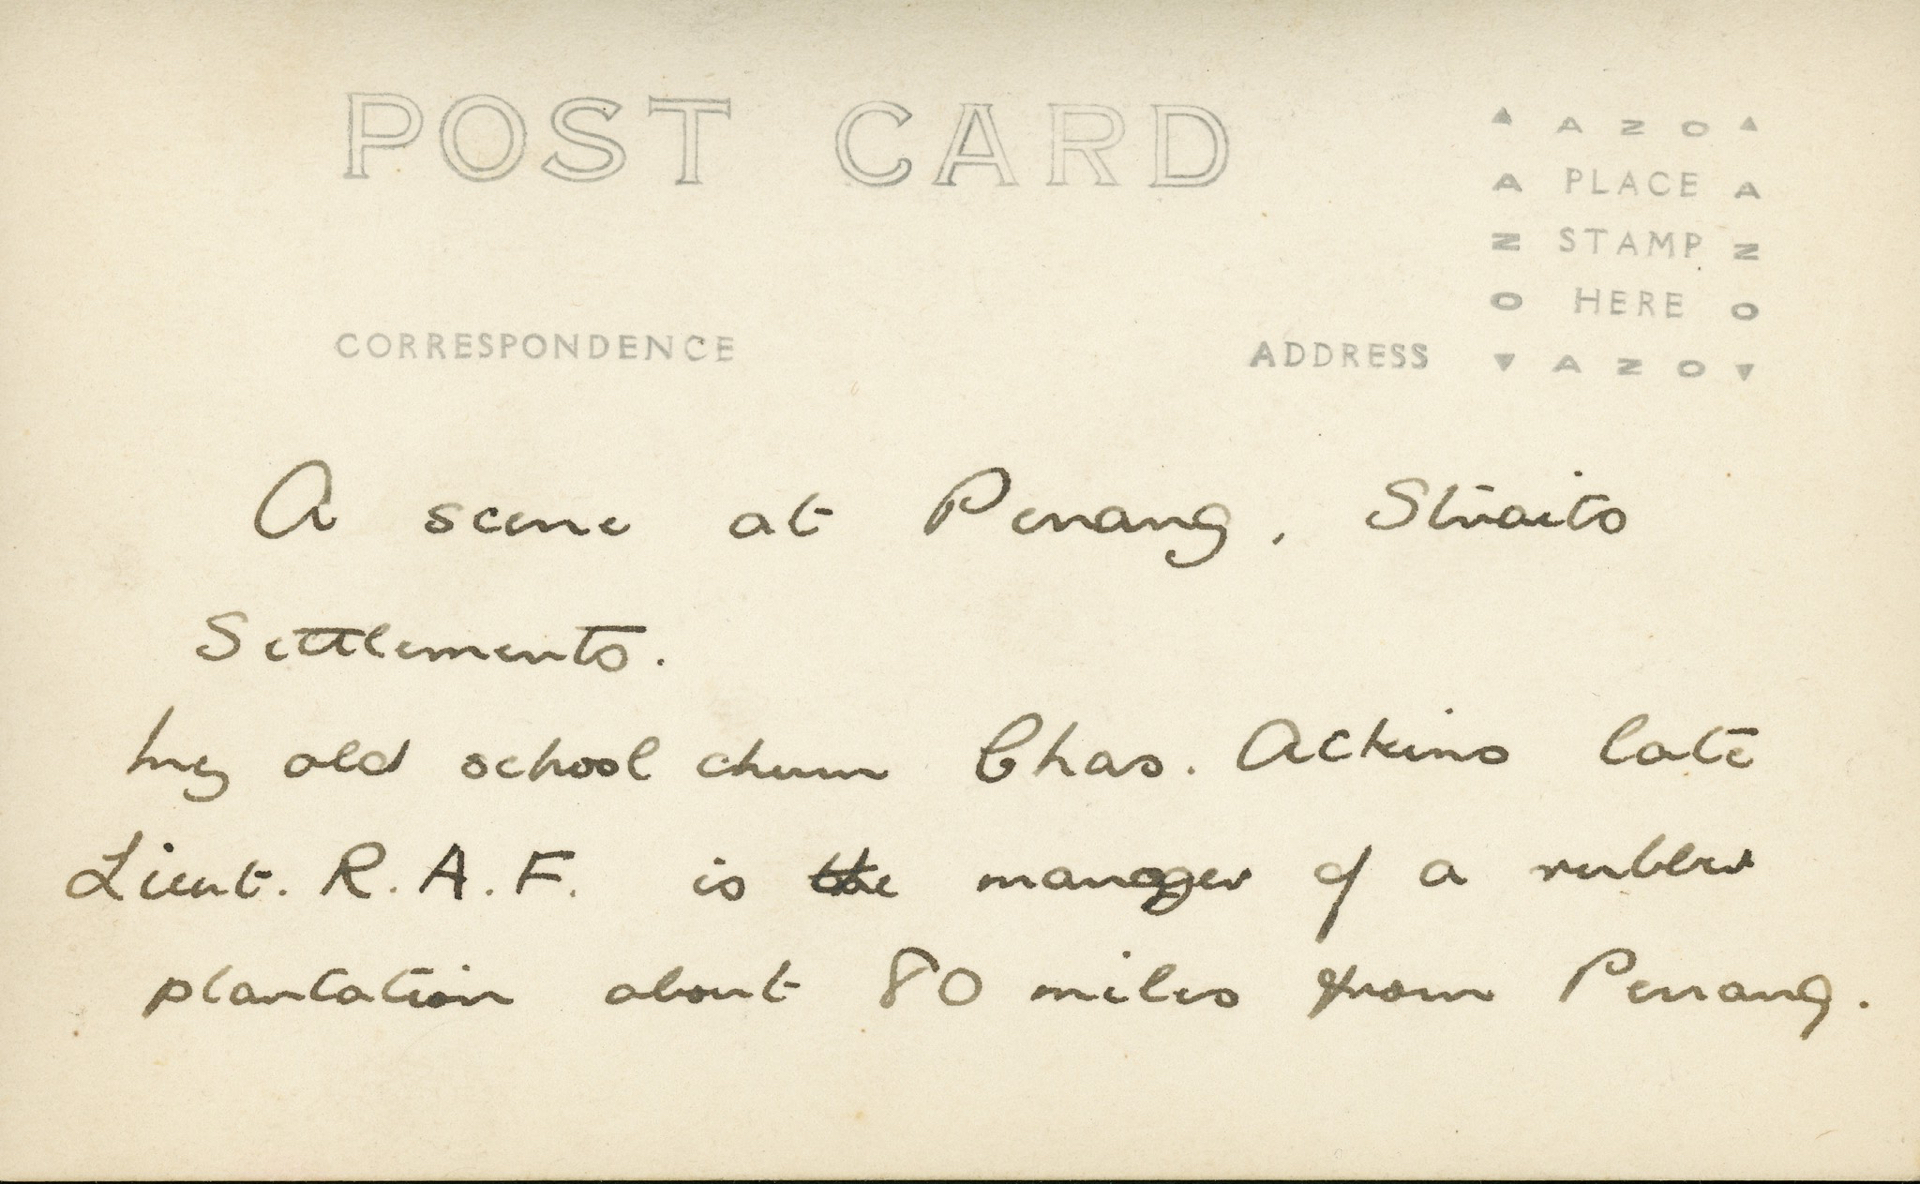 POST CARD
▲ A Z O ▲
A PLACE A
Z STAMP Z
O HERE O
▼ A Z O ▼
CORRESPONDENCE
ADDRESS
A scene at Penang, Straits
Settlements.
My old school chum Chas. Ackins late
Lieut. R.A.F. is the manager of a rubber
plantation about 80 miles from Penang.